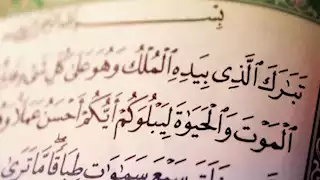 تَبَٰرَكَ ٱلَّذِى بِيَدِهِ ٱلْمُلْكُ وَهُوَ عَلَىٰ كُلِّ شَىْءٍ
ٱلْمَوْتَ وَٱلْحَيَوٰةَ لِيَبْلُوَكُمْ أَيُّكُمْ أَحْسَنُ عَمَلًا
سَبْعَ سَمَٰوَٰتٍ طِبَاقًا مَّا تَرَىٰ